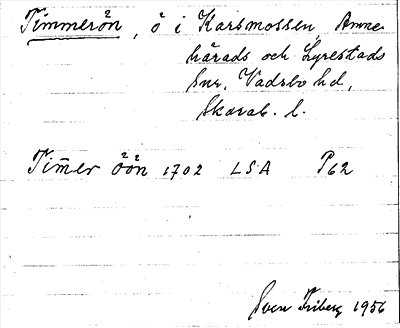 Timmerön, ö i Karsmossen, Amne-
härads och Lyrestads
snr, Vadsbo hd,
Skarab. l.
Tim̄er öön 1702 LSA P62
Sven Friberg 1956